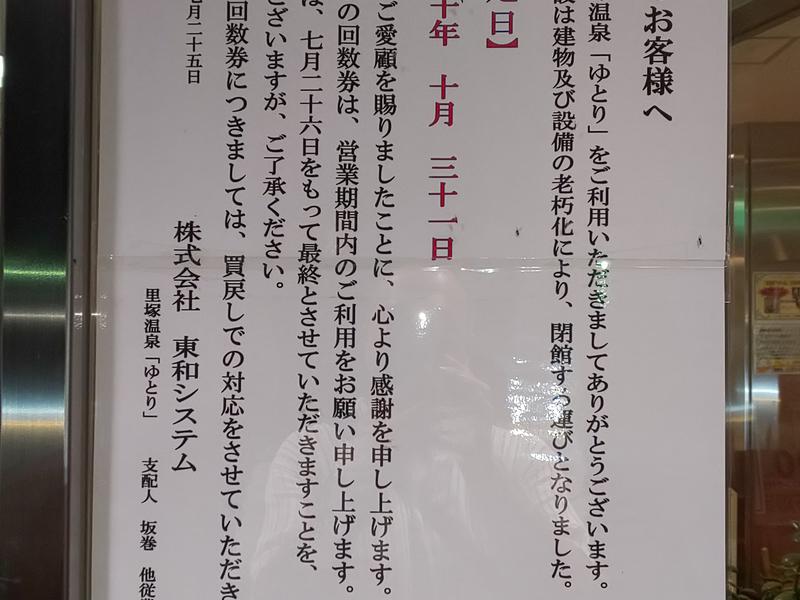 お客様へ
温泉「ゆとり」をご利用いただきましてありがとうございます。
は建物及び設備の老朽化により、閉館する運びとなりました。
日】
十年 十月 三十一日
ご愛顧を賜りましたことに、心より感謝を申し上げます。
の回数券は、営業期間内のご利用をお願い申し上げます。
は、七月二十六日をもって最終とさせていただきますことを、
ございますが、ご了承ください。
回数券につきましては、買戻しでの対応をさせていただき
七月二十五日
株式会社 東和システム
里塚温泉「ゆとり」 支配人 坂巻 他従